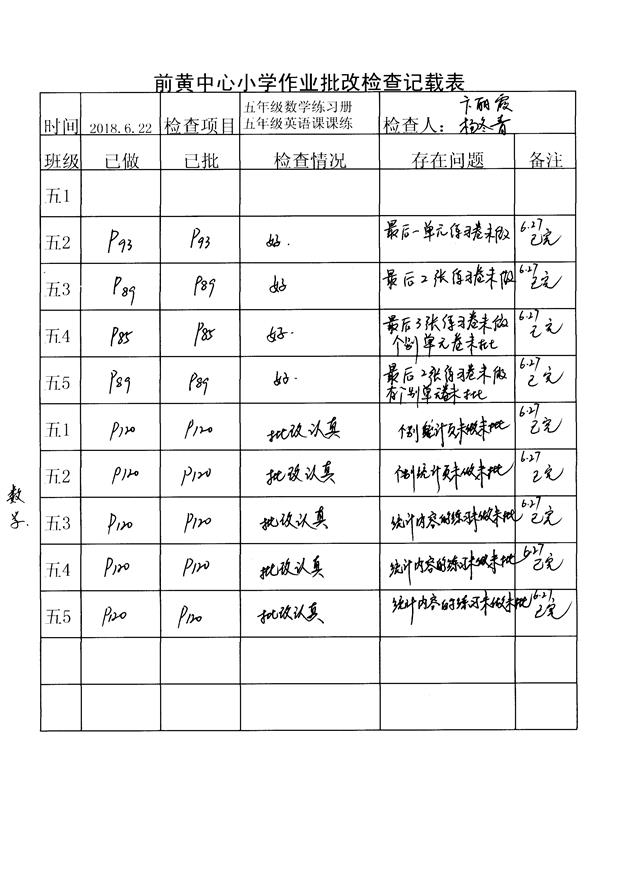 前黄中心小学作业批改检查记载表
时间 2018.6.22 检查项目 五年级数学练习册 检查人： 卞丽霞
五年级英语课课练 杨冬青
班级 已做 已批 检查情况 存在问题 备注
五1
五2 P93 P93 好. 最后一单元练习卷未做 6.27 已完
五3 P89 P89 好 最后2张练习卷未做 6.27 已完
五4 P85 P85 好. 最后3张练习卷未做 6.27 已完
个别单元卷未批
五5 P89 P89 好. 最后2张练习卷未做 6.27 已完
有个别单元卷未批
五1 P120 P120 批改认真 个别统计页未做未批 6.27 已完
五2 P120 P120 批改认真 个别统计页未做未批 6.27 已完
数学.
五3 P120 P120 批改认真 统计内容的练习未做未批 6.27 已完
五4 P120 P120 批改认真 统计内容的练习未做未批 6.27 已完
五5 P120 P120 批改认真 统计内容的练习未做未批 6.27 已完